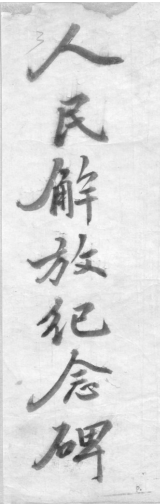 人民解放纪念碑